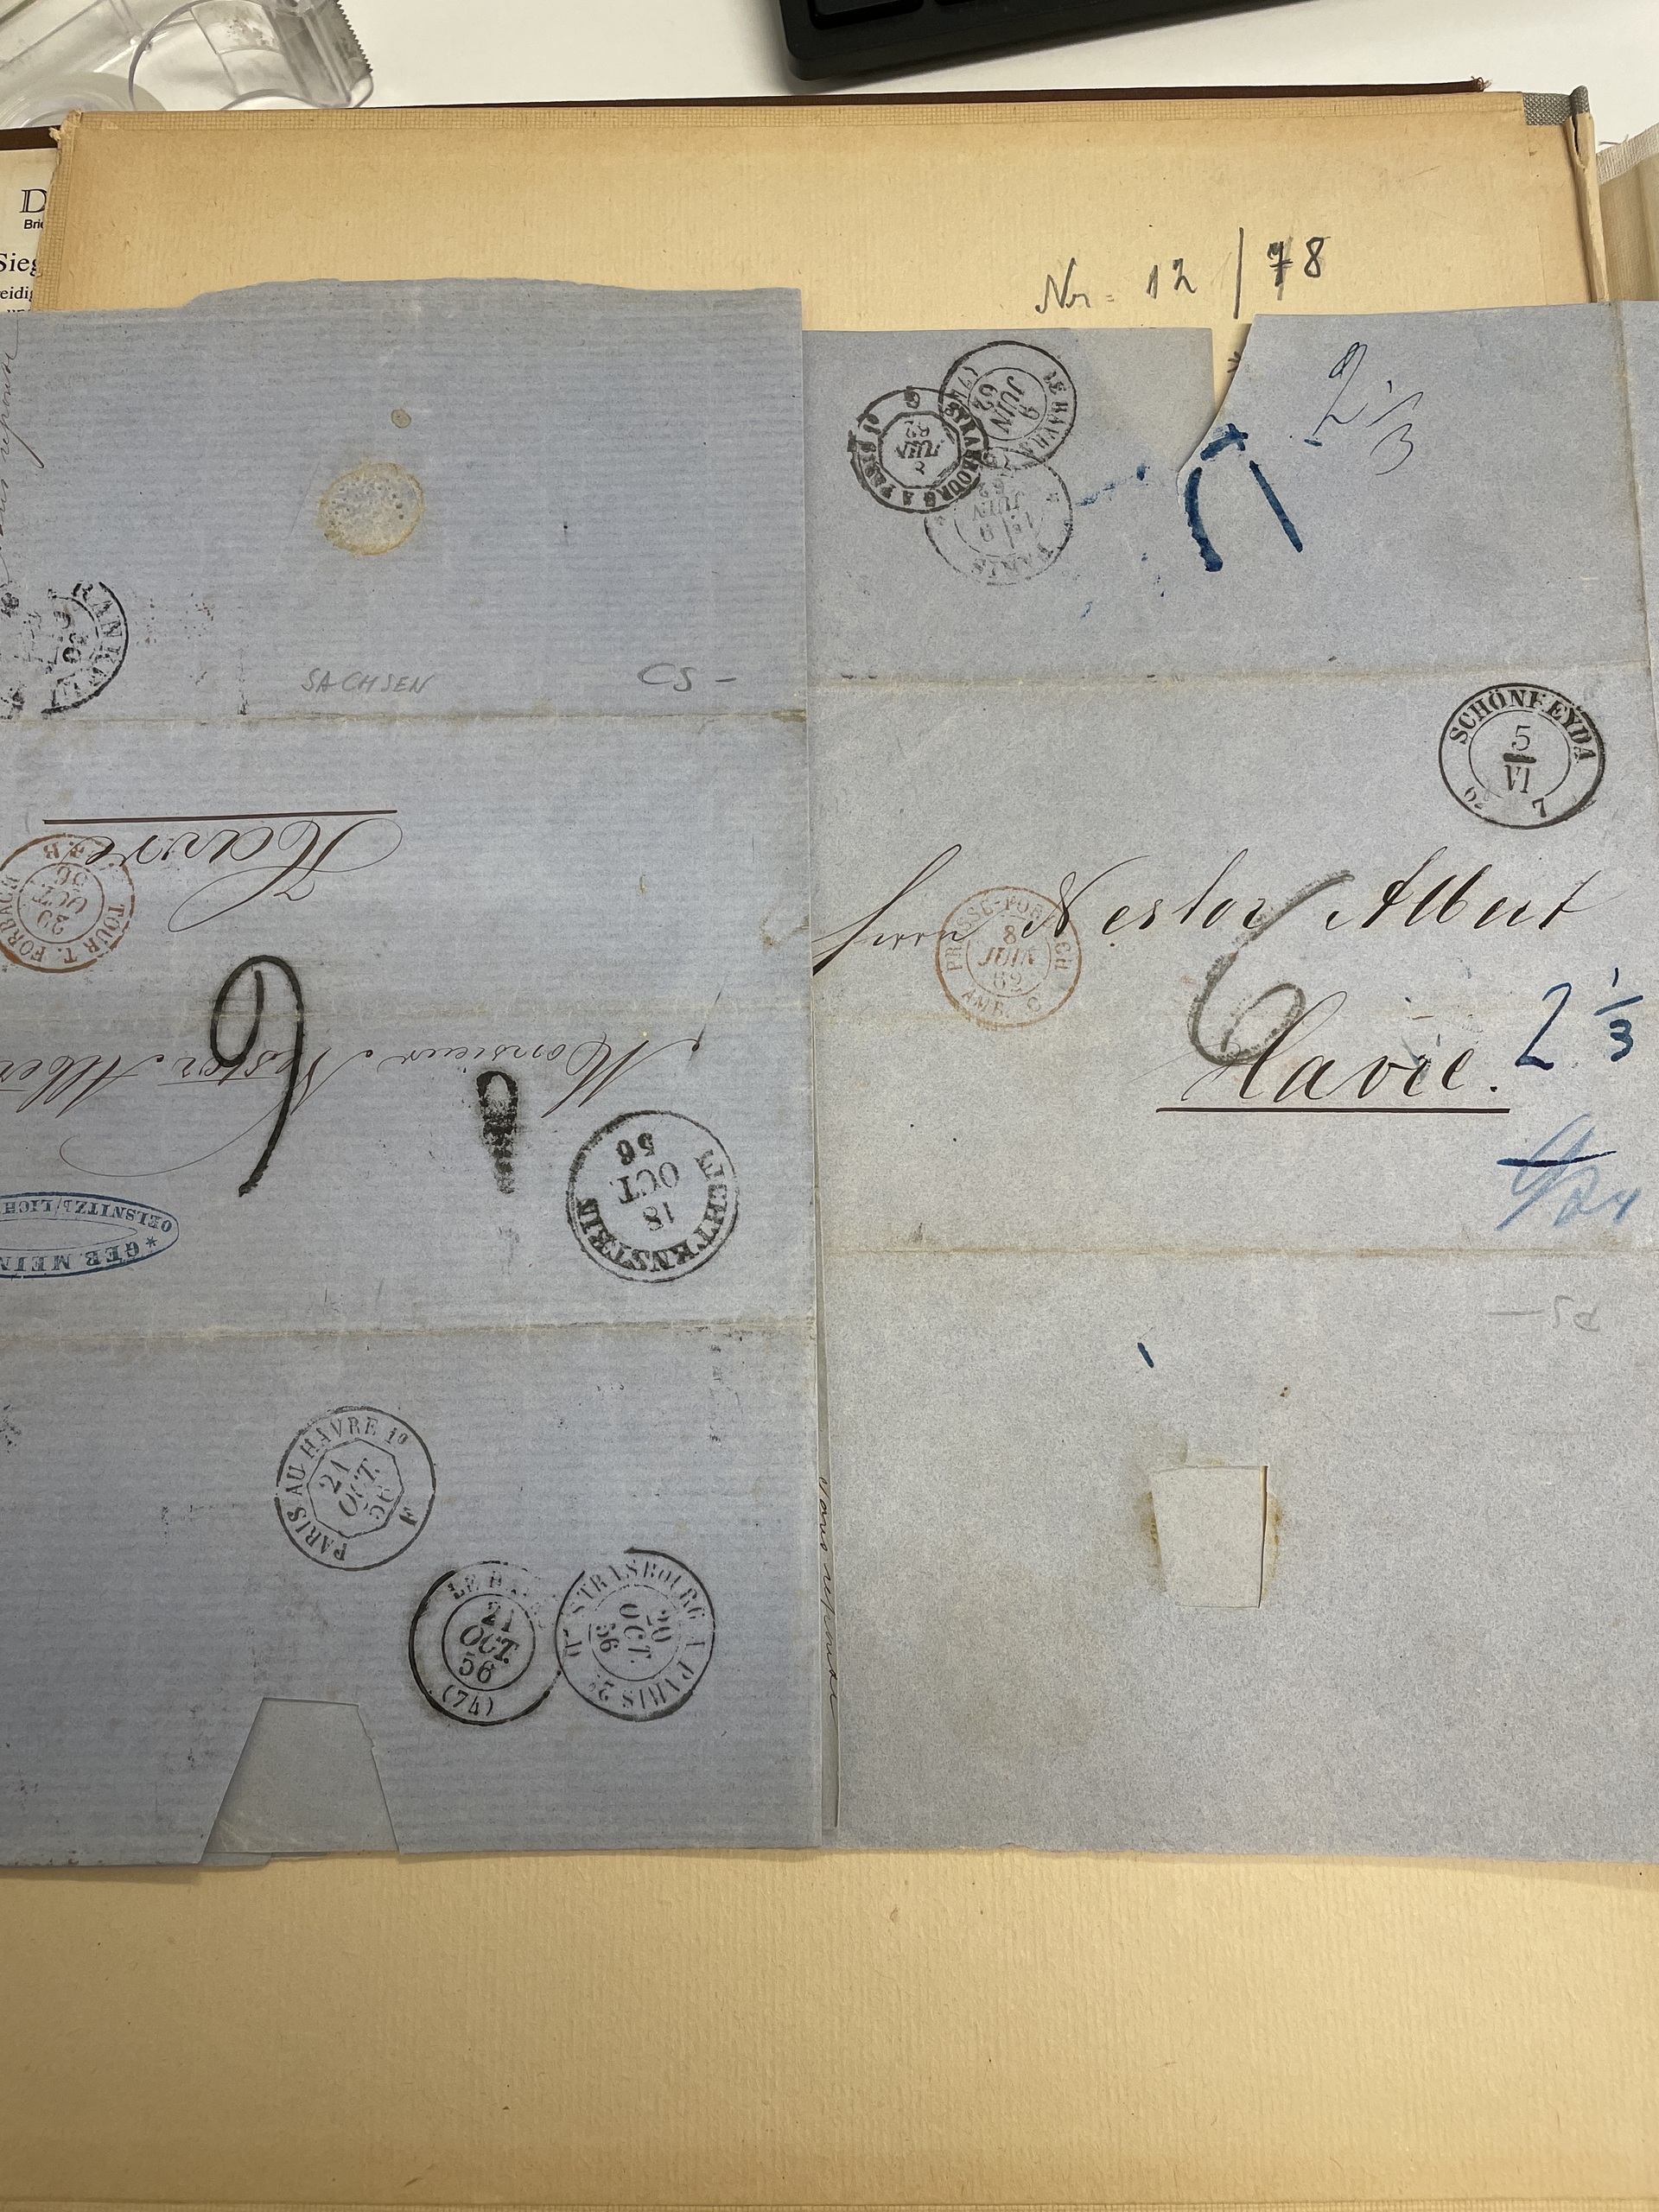 D
Brie
Sieg
eidig
Nr. 12 / 78
2 1/3
LE HAVRE (74)
9
JUIN
62
STRASBOURG A PARIS 1º
8
JUIN
62
PARIS
9
JUIN
62
SACHSEN
CS –
SCHÖNHEYDA
5
VI
62 7
Herrn Nestor Albert
PRUSSE-FORBACH
8
JUIN
62
AMB. C
6
Havre.
2 1/3
Havre
TOUR-T. FORBACH
20
OCT.
56
Monsieur Nestor Albert
9
LICHTENSTEIN
18
OCT.
56
*GEB. MEIN
OELSNITZ b/LICH
PARIS AU HAVRE 1º
21
OCT.
56
F
LE HAVRE
21
OCT.
56
(74)
STRASBOURG A PARIS 2º
20
OCT.
56